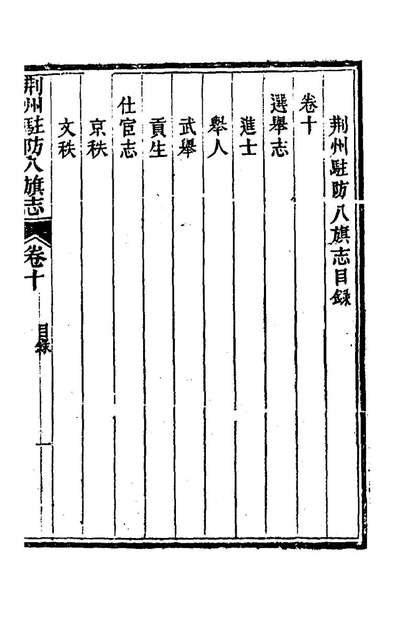 荆州駐防八旗志目錄
卷十
選舉志
進士
舉人
武舉
貢生
仕宦志
京秩
文秩
荆州駐防八旗志 卷十 目錄 一